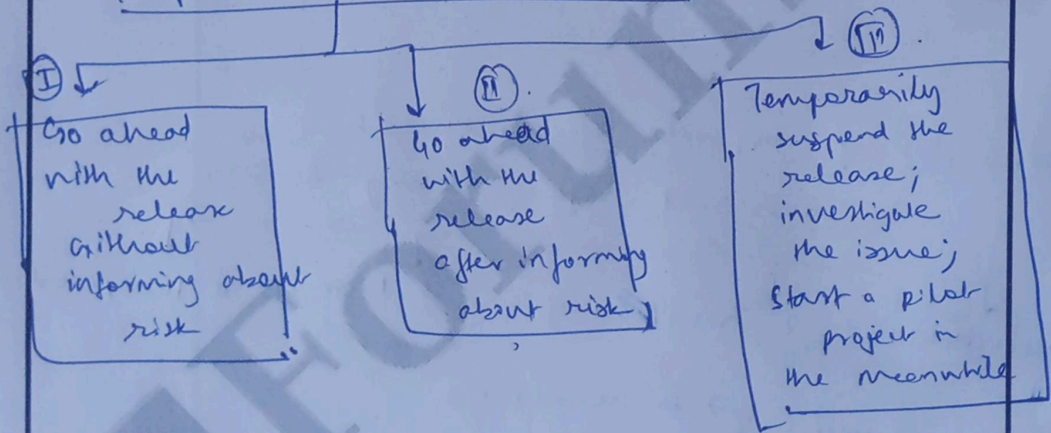 I
Go ahead
with the
release
without
informing about
risk
II
Go ahead
with the
release
after informing
about risk
III
Temporarily
suspend the
release;
investigate
the issue;
Start a pilot
project in
the meanwhile
Forum